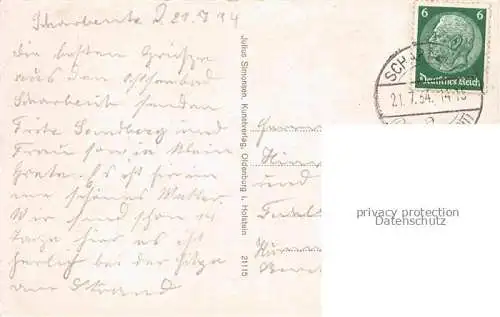 Scharbeutz d 21.7.34
Die besten Grüsse
aus dem Ostseebad
Scharbeutz senden
Fritz Sandberg und
Frau sowie klein
Grete. Es ist hir ein
schönes Wetter.
Wir sind schon 14
Tage hier es ist
herlich bei der Hitze
am Strand
Julius Simonsen, Kunstverlag, Oldenburg i. Holstein 21115
6 6
Deutsches Reich
SCHA
21.7.34. 14-15
und
privacy protection
Datenschutz